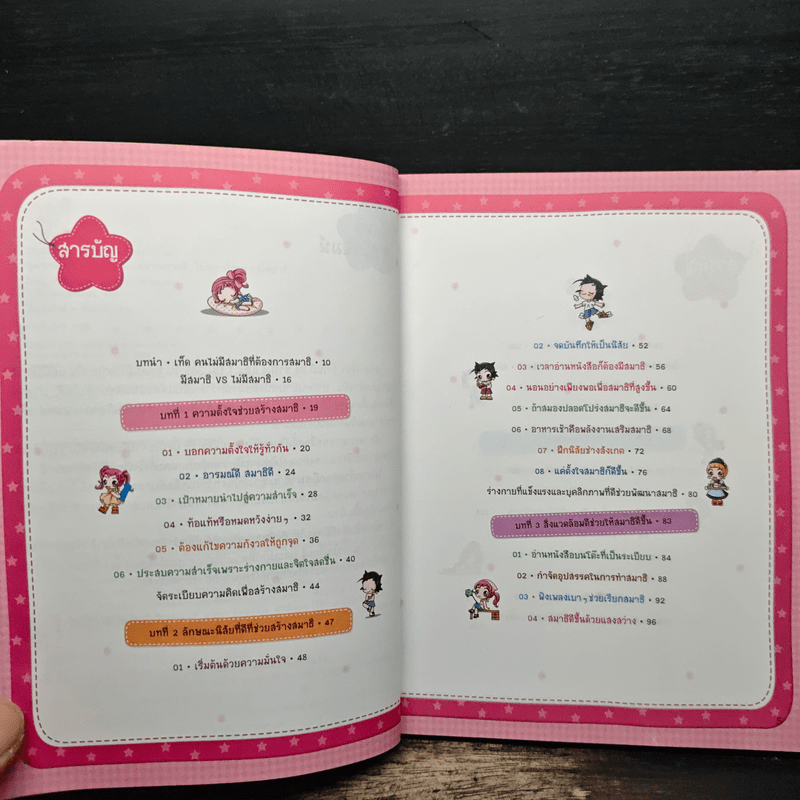 สารบัญ
บทนำ • เท็ด คนไม่มีสมาธิที่ต้องการสมาธิ • 10
มีสมาธิ VS ไม่มีสมาธิ • 16
บทที่ 1 ความตั้งใจช่วยสร้างสมาธิ • 19
01 • บอกความตั้งใจให้รู้ทั่วกัน • 20
02 • อารมณ์ดี สมาธิดี • 24
03 • เป้าหมายนำไปสู่ความสำเร็จ • 28
04 • ท้อแท้หรือหมดหวังง่ายๆ • 32
05 • ต้องแก้ไขความกังวลให้ถูกจุด • 36
06 • ประสบความสำเร็จเพราะร่างกายและจิตใจสดชื่น • 40
จัดระเบียบความคิดเพื่อสร้างสมาธิ • 44
บทที่ 2 ลักษณะนิสัยที่ดีที่ช่วยสร้างสมาธิ • 47
01 • เริ่มต้นด้วยความมั่นใจ • 48
02 • จดบันทึกให้เป็นนิสัย • 52
03 • เวลาอ่านหนังสือก็ต้องมีสมาธิ • 56
04 • นอนอย่างเพียงพอเพื่อสมาธิที่สูงขึ้น • 60
05 • ถ้าสมองปลอดโปร่งสมาธิจะดีขึ้น • 64
06 • อาหารเช้าคือพลังงานเสริมสมาธิ • 68
07 • ฝึกนิสัยช่างสังเกต • 72
08 • แค่ตั้งใจสมาธิก็ดีขึ้น • 76
ร่างกายที่แข็งแรงและบุคลิกภาพที่ดีช่วยพัฒนาสมาธิ • 80
บทที่ 3 สิ่งแวดล้อมดีช่วยให้สมาธิดีขึ้น • 83
01 • อ่านหนังสือบนโต๊ะที่เป็นระเบียบ • 84
02 • กำจัดอุปสรรคในการทำสมาธิ • 88
03 • ฟังเพลงเบาๆ ช่วยเรียกสมาธิ • 92
04 • สมาธิดีขึ้นด้วยแสงสว่าง • 96